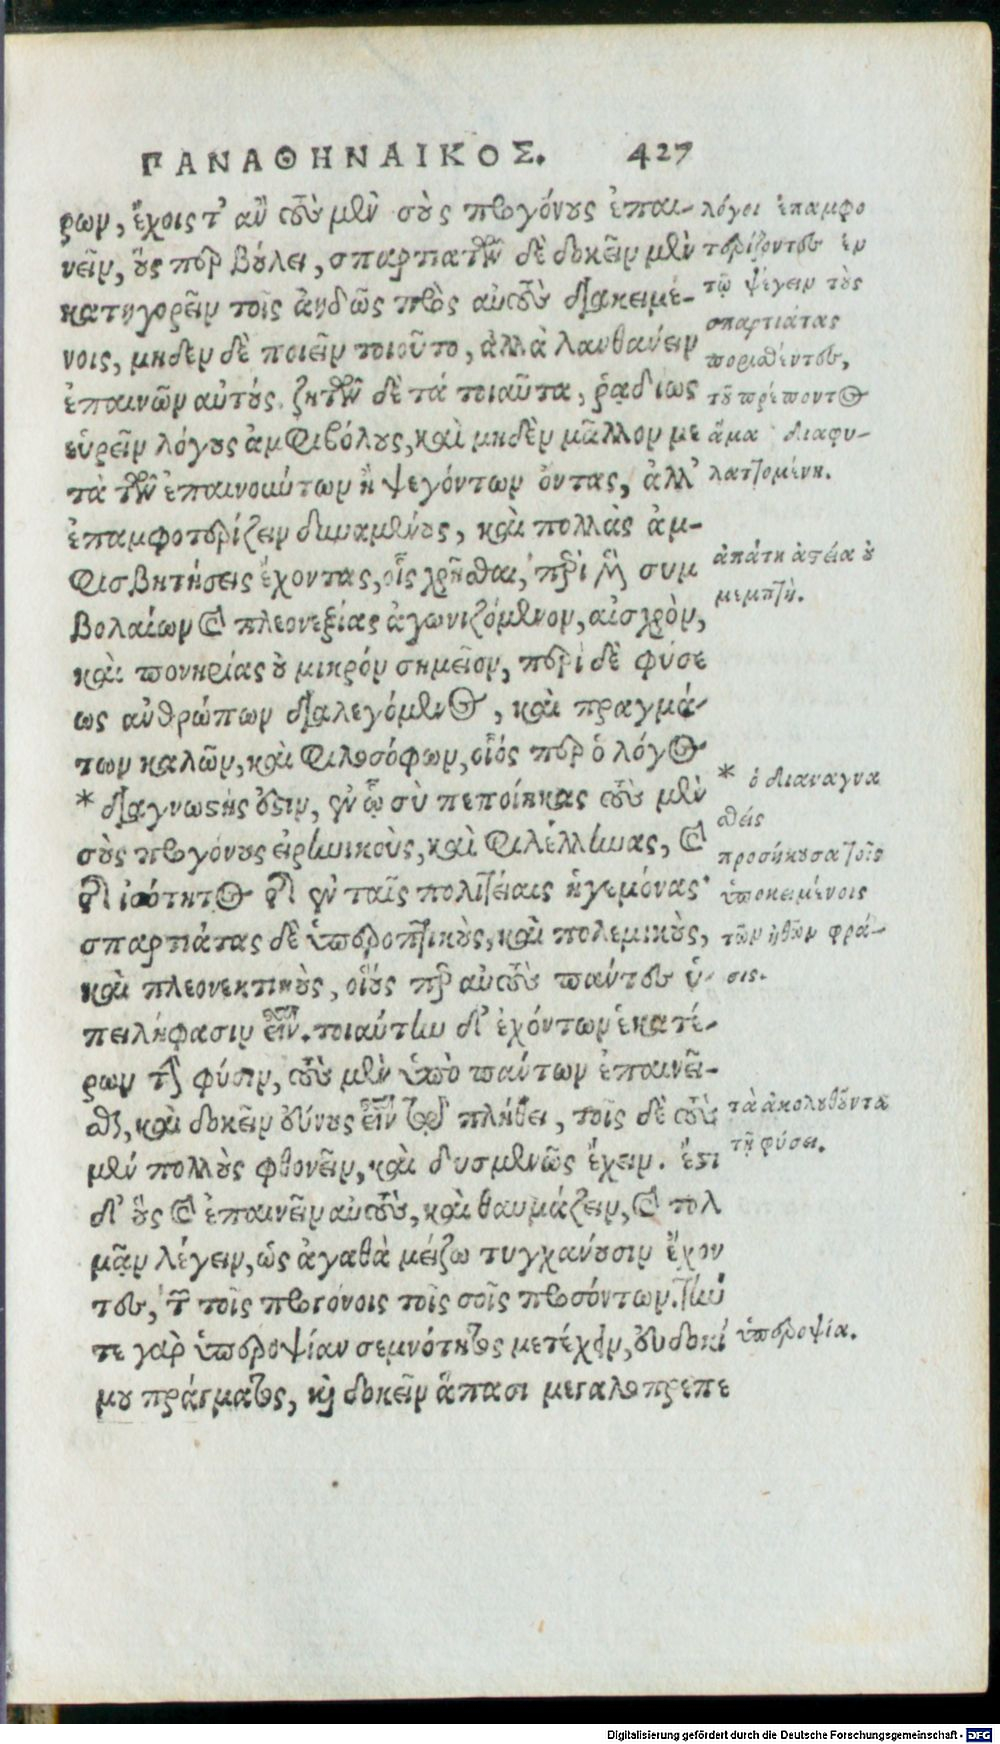 ΠΑΝΑΘΗΝΑΙΚΟΣ. 427
ρων, ἔχοις τ' ἂν τοὺς μὲν σοὺς προγόνους ἐπαι-
νεῖν, οὕς περ βούλει, σπαρτιατῶν δὲ δοκεῖν μὲν
κατηγορεῖν τοῖς ἀηδῶς πρὸς αὐτοὺς διακειμέ-
νοις, μηδὲν δὲ ποιεῖν τοιοῦτο, ἀλλὰ λανθάνειν
ἐπαινῶν αὐτούς. ζητῶν δὲ τὰ τοιαῦτα, ῥᾳδίως
εὑρεῖν λόγους ἀμφιβόλους, καὶ μηδὲν μᾶλλον με
τὰ τῶν ἐπαινούντων ἢ ψεγόντων ὄντας, ἀλλ'
ἐπαμφοτερίζειν δυναμένους, καὶ πολλὰς ἀμ-
φισβητήσεις ἔχοντας, οἷς χρῆσθαι, περὶ μὲν συμ
βολαίων καὶ πλεονεξίας ἀγωνιζόμενον, αἰσχρὸν,
καὶ πονηρίας οὐ μικρὸν σημεῖον, περὶ δὲ φύσε
ως ἀνθρώπων διαλεγόμενος, καὶ πραγμά-
των καλῶν, καὶ φιλόσοφων, οἷός περ ὁ λόγος
* διαγνωσθεὶς ἐστιν, ἐν ᾧ σὺ πεποίηκας τοὺς μὲν
σοὺς προγόνους εἰρηνικοὺς, καὶ φιλέλληνας, καὶ
τῆς ἰσότητος τῆς ἐν ταῖς πολιτείαις ἡγεμόνας·
σπαρτιάτας δὲ ὑπεροπτικοὺς, καὶ πολεμικοὺς,
καὶ πλεονεκτικοὺς, οἵους περ αὐτοὺς πάντες ὑ-
πειλήφασιν εἶναι. τοιαύτην δ' ἐχόντων ἑκατέ-
ρων τὴν φύσιν, τοὺς μὲν ὑπὸ πάντων ἐπαινεῖ-
σθαι, καὶ δοκεῖν εὔνους εἶναι τῷ πλήθει, τοῖς δὲ τοὺς
μὲν πολλοὺς φθονεῖν, καὶ δυσμενῶς ἔχειν. ἔστι
δ' οὓς καὶ ἐπαινεῖν αὐτοὺς, καὶ θαυμάζειν, καὶ τολ
μᾷν λέγειν, ὡς ἀγαθὰ μείζω τυγχάνουσιν ἔχον
τες, τῶν τοῖς προγόνοις τοῖς σοῖς προσόντων. τήν
τε γὰρ ὑπεροψίαν σεμνότητος μετέχειν, εὐδοκί
μου πράγματος, καὶ δοκεῖν ἅπασι μεγαλοπρεπε
λόγοι ἐπαμφο
τερίζοντες ἐν
τῷ ψέγειν τοὺς
σπαρτιάτας
ποριθέντες,
τοῦ πρέποντος
ἅμα διαφυ-
λαττομένη.
ἀπάτη ἀστεία οὐ
μεμπτή.
* ὁ διαναγνω
σθείς
προσήκουσα τοῖς
ὑποκειμένοις
τῶν ἠθῶν φρά-
σις.
τὰ ἀκολουθοῦντα
τῇ φύσει.
ὑπεροψία.
Digitalisierung gefördert durch die Deutsche Forschungsgemeinschaft - DFG